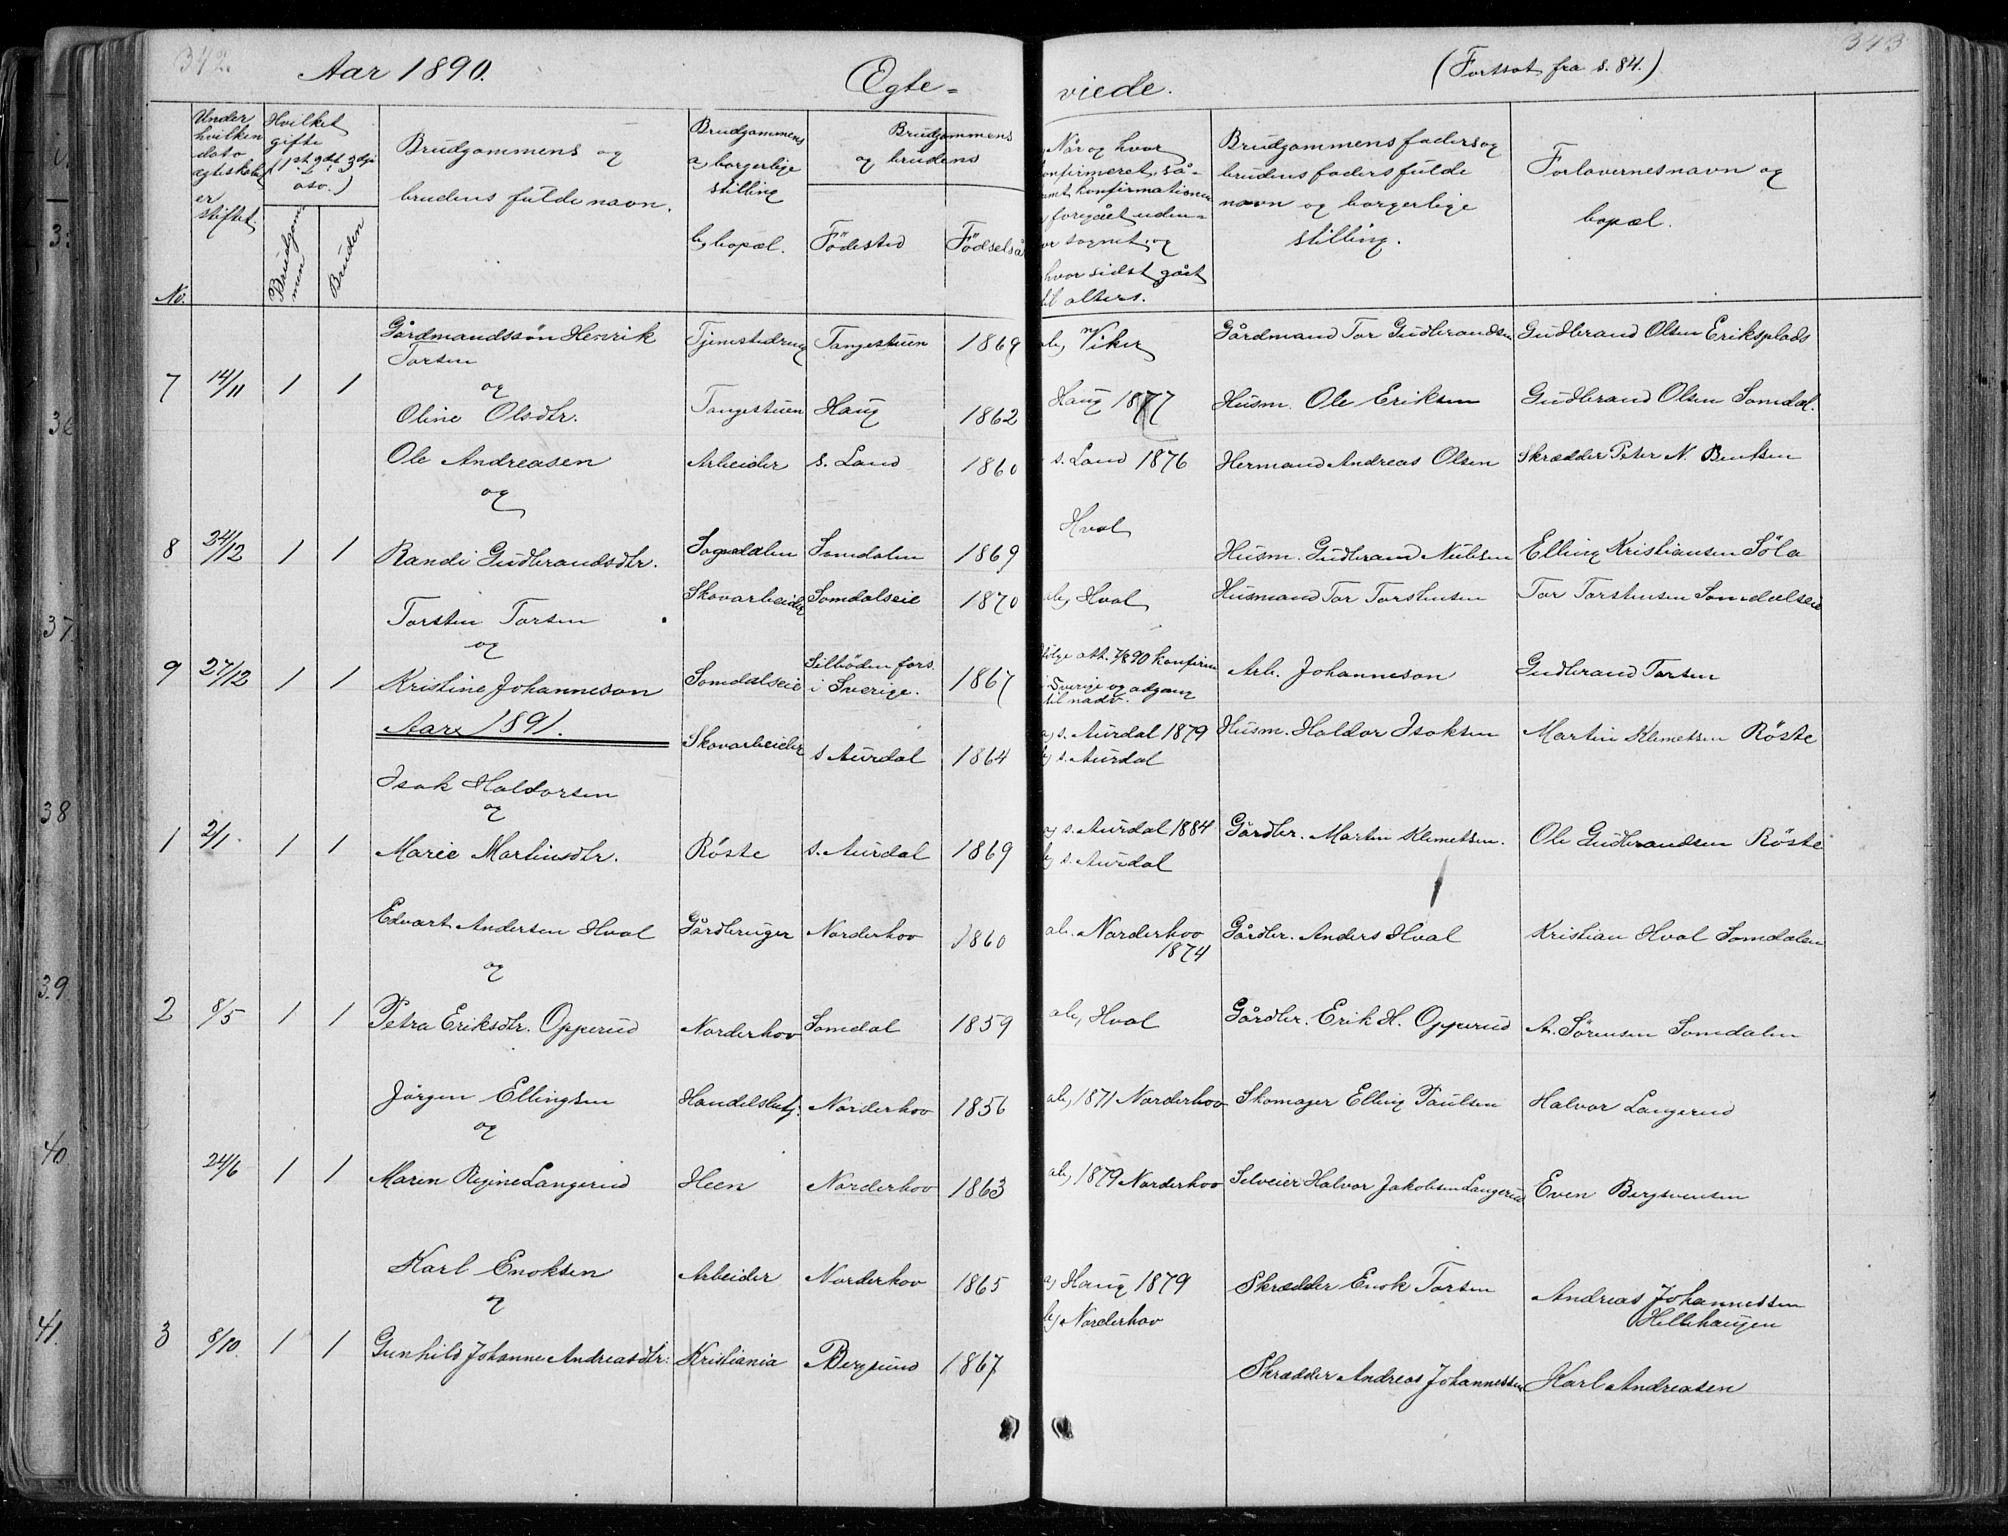 342.
Aar 1890.
Egte-
viede.
(Fortsat fra s. 84.)
343
No.
Under hvilken dato ægteskabet er stiftet.
Hvilket gifte (1st, 2det, 3dje osv.)
Brudgommen
Bruden
Brudgommens og brudens fulde navn.
Brudgommens a, borgerlige stilling
b, bopæl.
Brudgommens og brudens
Födested
Födselsår
Når og hvor konfirmeret, så-
samt konfirmationen
foregået uden-
for sognet, og
hvor sidst gået
til alters.
Brudgommens faders og
brudens faders fulde
navn og borgerlige
stilling.
Forlovernes navn og
bopæl.
Gårdmandssön Henrik Torsen Tjenestedreng Tangestuen 1869 ab, Viker Gårdmand Tor Gudbrandsen Gudbrand Olsen Eriksplads
7 14/11 1 1 og
Oline Olsdtr. Tangestuen Haug 1862 Haug 1877 Husm. Ole Eriksen Gudbrand Olsen Somdal.
Ole Andreasen Arbeider s. Land 1860 s. Land 1876 Hermand Andreas Olsen Skrædder Peter N. Bentsen
og
8 24/12 1 1 Randi Gudbrandsdtr. Sognedalen Somdalen 1869 Hval Husm. Gudbrand Nilsen Elling Kristiansen Söla
Torsten Torsen Skovarbeider Somdalseie 1870 ab, Hval Husmand Tor Torstensen Tor Torstensen Somdalseie
og
9 27/12 1 1 Kristine Johanneson Somdalseie Silböden fors. i Sverige. 1867 ifölge att. 7/8 90 konfirm. i Sverige og adgang til nadv. Arb. Johanneson Gudbrand Torsen
Aar 1891.
Isak Haldorsen Skovarbeider s. Aurdal 1864 a, s. Aurdal 1879 b, s. Aurdal Husm. Haldor Isaksen Martin Klemetsen Röste
og
1 2/1 1 1 Marie Martinsdtr. Röste s. Aurdal 1869 a, s. Aurdal 1884 b, s. Aurdal Gårdbr. Martin Klemetsen. Ole Gudbrandsen Röste
Edvart Andersen Hval Gårdbruger Norderhov 1860 ab. Norderhov 1874 Gårdbr. Anders Hval Kristian Hval Somdalen
og
2 8/5 1 1 Petra Eriksdtr. Opperud Norderhov Somdal 1859 ab, Hval Gårdbr. Erik H. Opperud A. Sörensen Somdalen
Jörgen Ellingsen Handelsbetj. Norderhov 1856 ab, 1871 Norderhov Skomager Elling Paulsen Halvor Langerud
og
24/6 1 1 Maren Regine Langerud Heen Norderhov 1863 ab, 1879 Norderhov Selveier Halvor Jakobsen Langerud Even Bergsvensen
Karl Enoksen Arbeider Norderhov 1865 a, Haug 1879 b, Norderhov Skrædder Enok Torsen Andreas Johannessen Hellehaugen
og
3 8/10. 1 1 Gunhild Johanne Andreasdtr. Kristiania Bergsund 1867 Skrædder Andreas Johannessen Karl Andreasen
36
37.
38
39.
40.
41.